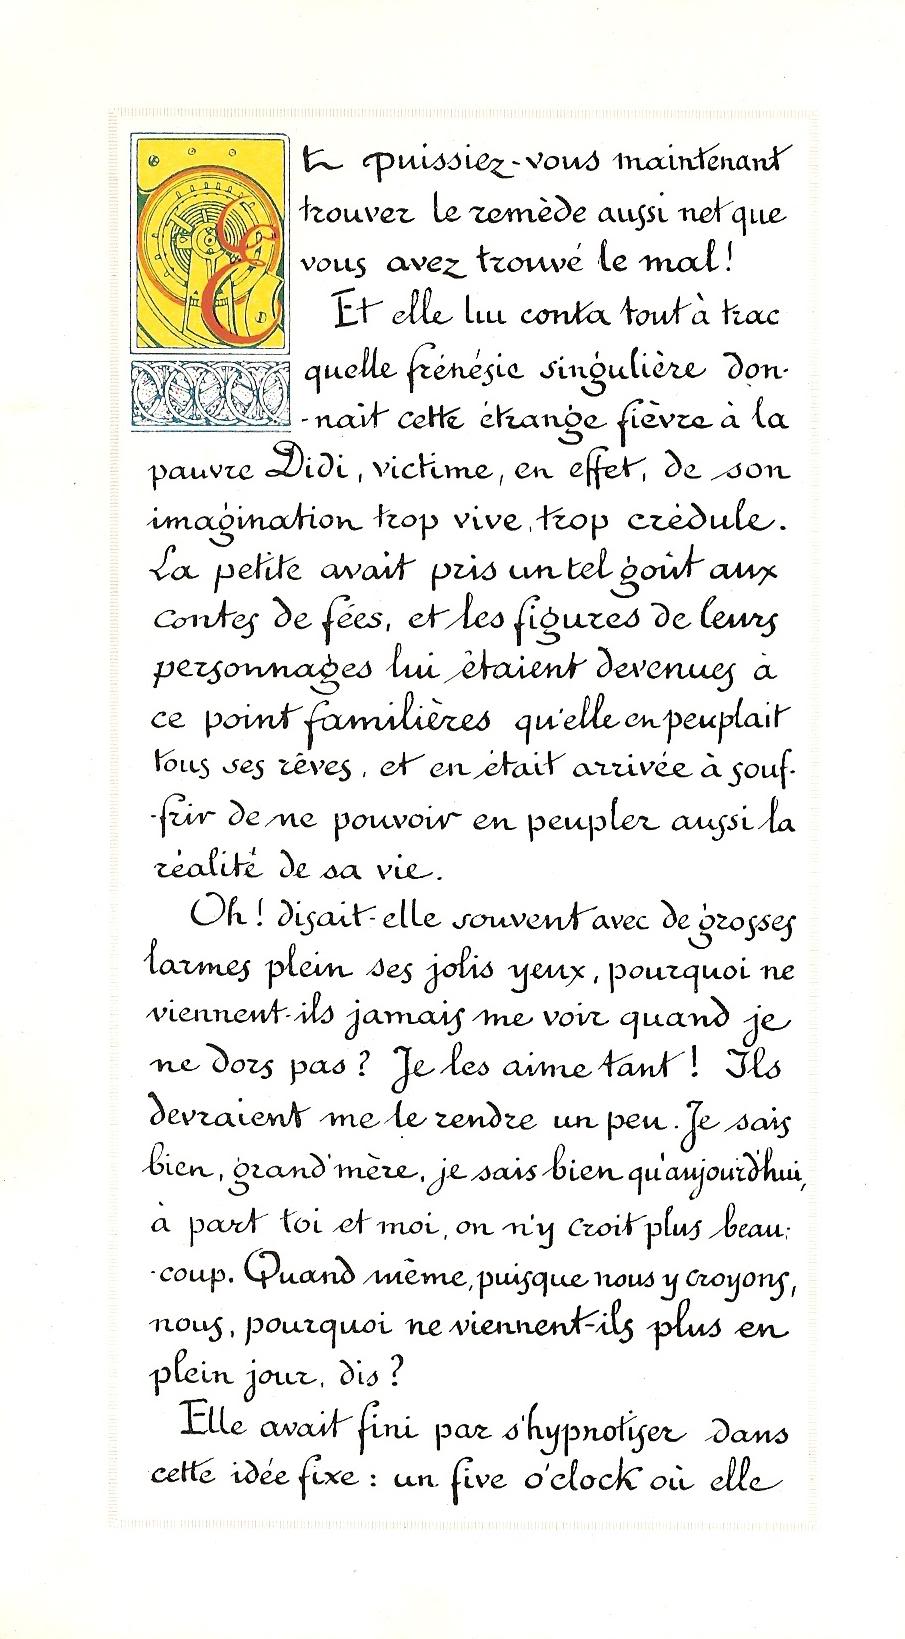 Et puissiez-vous maintenant
trouver le remède aussi net que
vous avez trouvé le mal!
Et elle lui conta tout à trac
quelle frénésie singulière don-
-nait cette étrange fièvre à la
pauvre Didi, victime, en effet, de son
imagination trop vive, trop crédule.
La petite avait pris un tel goût aux
contes de fées, et les figures de leurs
personnages lui étaient devenues à
ce point familières qu'elle en peuplait
tous ses rêves, et en était arrivée à souf-
-frir de ne pouvoir en peupler aussi la
réalité de sa vie.
Oh! disait-elle souvent avec de grosses
larmes plein ses jolis yeux, pourquoi ne
viennent-ils jamais me voir quand je
ne dors pas? Je les aime tant! Ils
devraient me le rendre un peu. Je sais
bien, grand'mère, je sais bien qu'aujourd'hui,
à part toi et moi, on n'y croit plus beau-
-coup. Quand même, puisque nous y croyons,
nous, pourquoi ne viennent-ils plus en
plein jour, dis?
Elle avait fini par s'hypnotiser dans
cette idée fixe : un five o'clock où elle